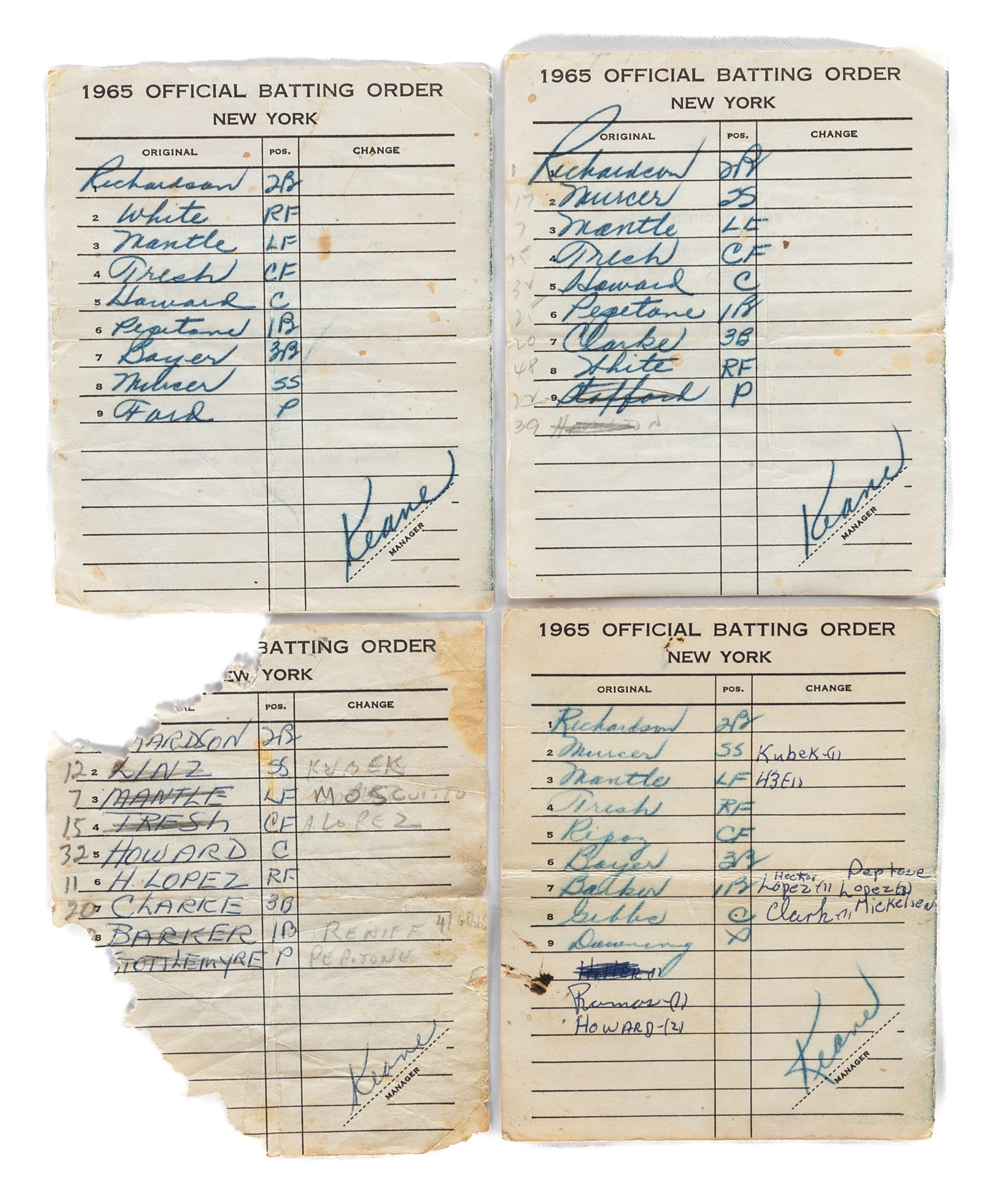 1965 OFFICIAL BATTING ORDER
NEW YORK
ORIGINAL POS. CHANGE
Richardson 2B
2 White RF
3 Mantle LF
4 Tresh CF
5 Howard C
6 Pepitone 1B
7 Boyer 3B
8 Murcer SS
9 Ford P
Keane
MANAGER
1965 OFFICIAL BATTING ORDER
NEW YORK
ORIGINAL POS. CHANGE
1 Richardson 2B
17 2 Murcer SS
7 3 Mantle LF
15 4 Tresh CF
32 5 Howard C
25 6 Pepitone 1B
20 7 Clarke 3B
48 8 White RF
22 9 Stafford P
39
Keane
MANAGER
BATTING ORDER
EW YORK
AL POS. CHANGE
HARDSON 2B
12 2 LINZ SS KUBEK
7 3 MANTLE LF MOSCHITTO
15 4 TRESH CF A. LOPEZ
32 5 HOWARD C
11 6 H. LOPEZ RF
20 7 CLARKE 3B
8 BARKER 1B RENIFF 41 GIBBS
STOTTLEMYRE P PEPITONE
Keane
MANAGER
1965 OFFICIAL BATTING ORDER
NEW YORK
ORIGINAL POS. CHANGE
1 Richardson 2B
2 Murcer SS Kubek-(1)
3 Mantle LF
4 Tresh RF
5 Repoz CF
6 Boyer 3B
7 Barker 1B Hector Lopez (1) Pepitone Lopez (2)
8 Gibbs C Clark (1) Mickelsen
9 Downing P
Ramos-(1)
HOWARD-(2)
Keane
MANAGER